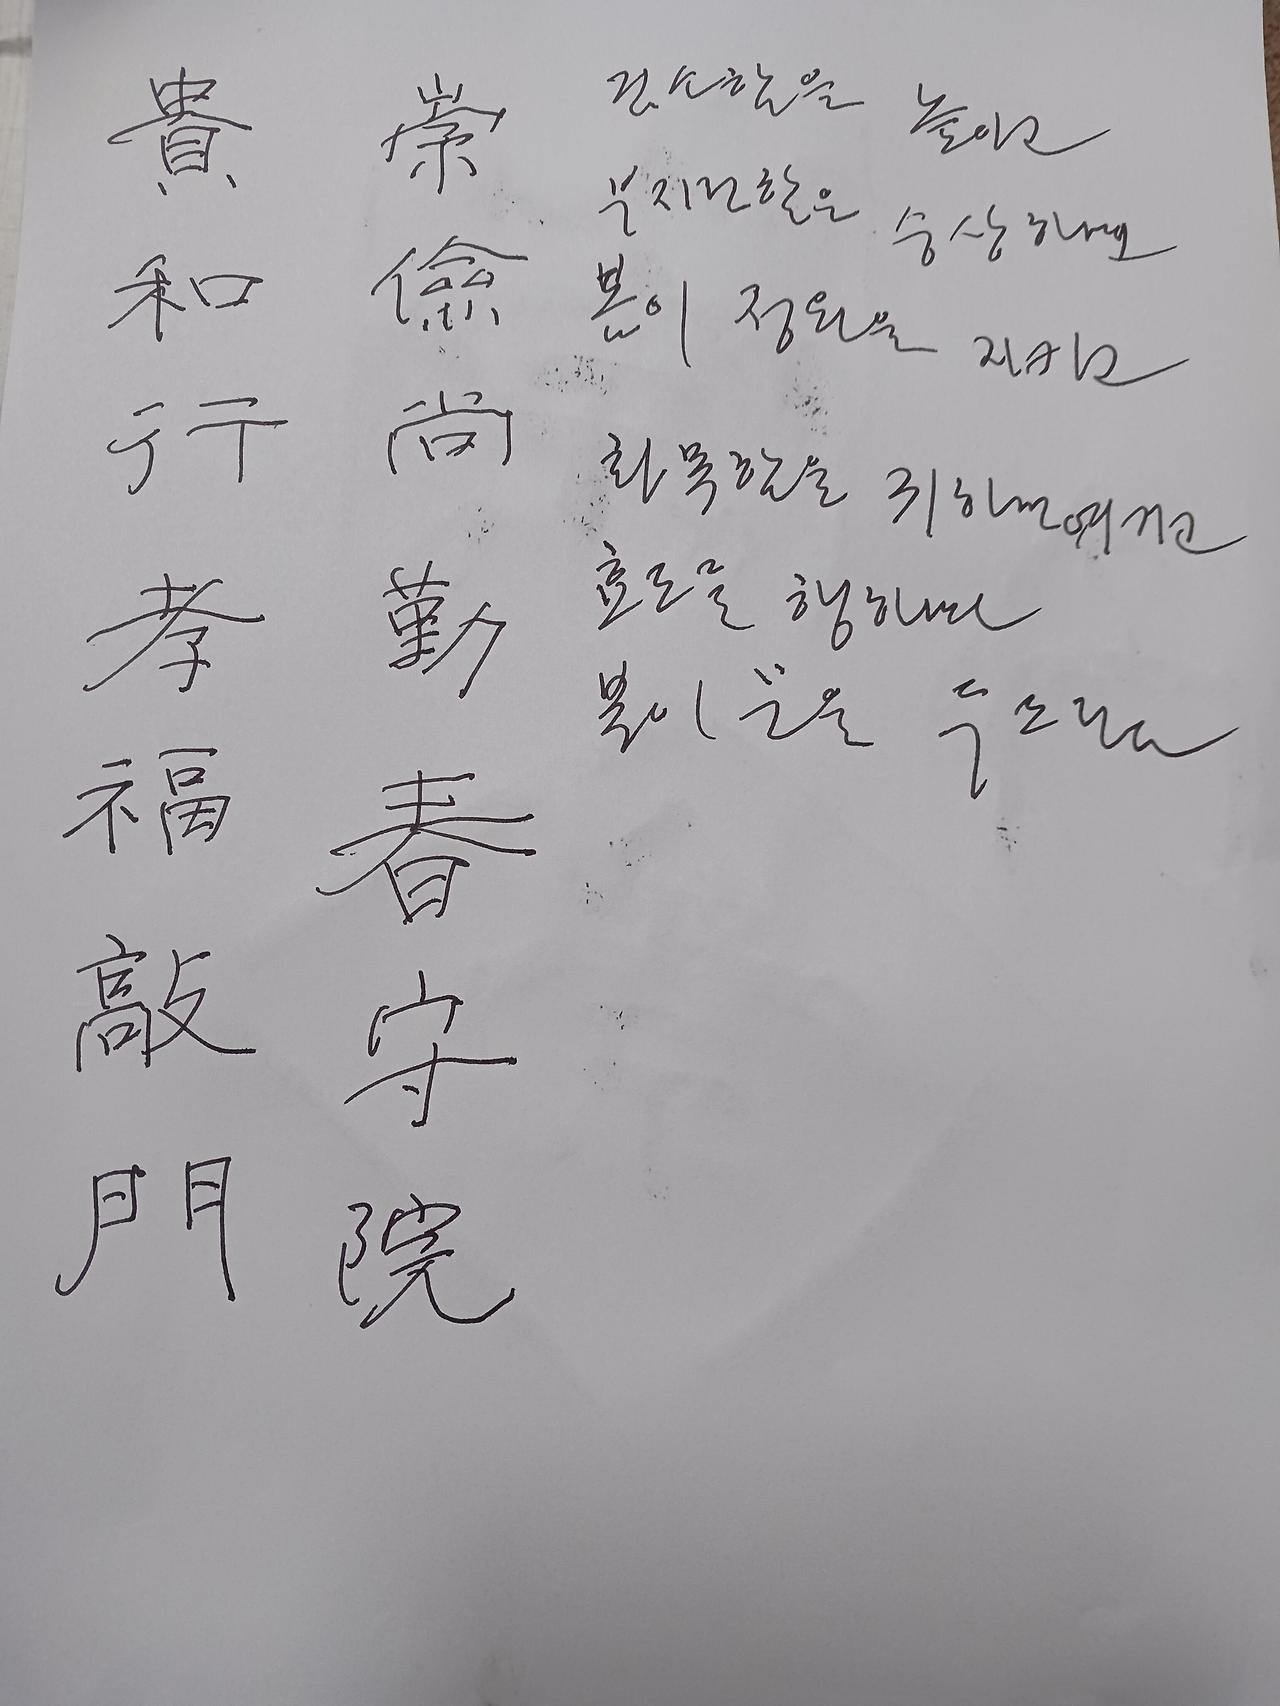 崇儉尙勤春守院
貴和行孝福敲門
검소함을 높이고
부지런함을 숭상하면
봄이 정원을 지키고
화목함을 귀하게 여기고
효도를 행하면
복이 문을 두드린다